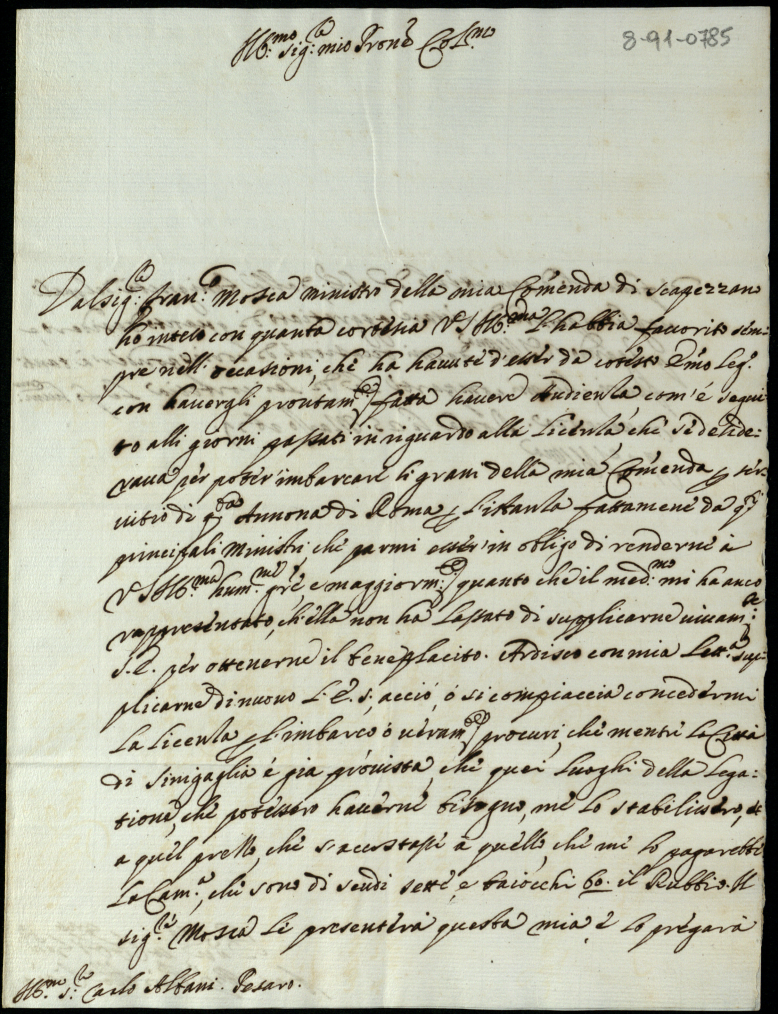 8-91-0785
Ill:mo sig:re mio Prone Col:mo
Dal sig:re Fran:co Mosca ministro della mia Comenda di Scapezzano
ho inteso con quanta cortesia V S Ill:ma l'habbia favorito sem=
pre nell'occasioni, che ha havute d'esser da cotesto Emo Leg:
con havergli prontam:te fatta havere Audienza com'è segui=
to alli giorni passati in riguardo alla Licenza, che si deside=
rava per poter imbarcare li grani della mia Comenda p ser=
vitio di q:ta Annona di Roma p l'istanza fattamene da q:i
principali Ministri, che parmi esser in obligo di renderne à
V S Ill:ma hum:me gre e maggiorm:te quanto che il med:mo mi ha anco
rappresentato, ch'ella non ha lassato di supplicarne vivam:te
S. E. per ottenerne il beneplacito. Ardisco con mia Lett:a sup=
plicarne di nuovo L'E. S, acciò, ò si compiaccia concedermi
la licenza p l'imbarco ò veram:te procuri, che mentre la Città
di Sinigaglia è già provista, che quei luoghi della Lega=
tione, che potessero haverne bisogno, me lo stabilissero, et
a quel prezzo, che s'accostassi à quello, che me lo pagarebbe
la Cam:a, che sono di scudi sette, e baiocchi 60. il Rubbio. Il
sig:re Mosca le presenterà questa mia, e lo pregarà
Ill:mo s:re Carlo Albani. Pesaro.